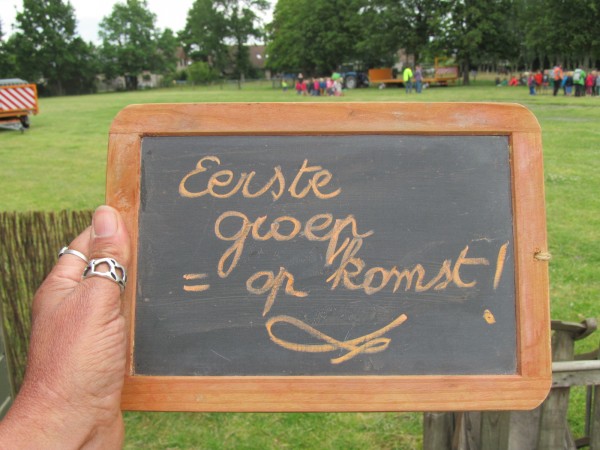 Eerste
groep
= op komst!